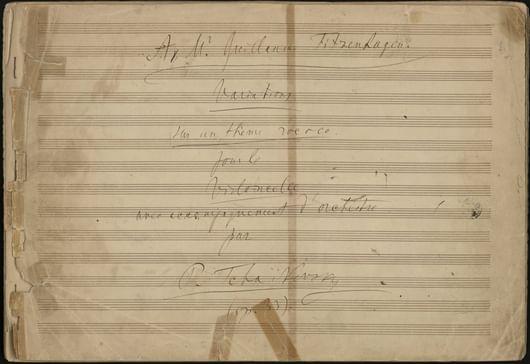 A Mr Guillaume Fitzenhagen.
Variations
sur un thème rococo.
pour le
Violoncelle
avec accompagnement d'orchestre
par
P. Tchaïkovsky
(op. 33).